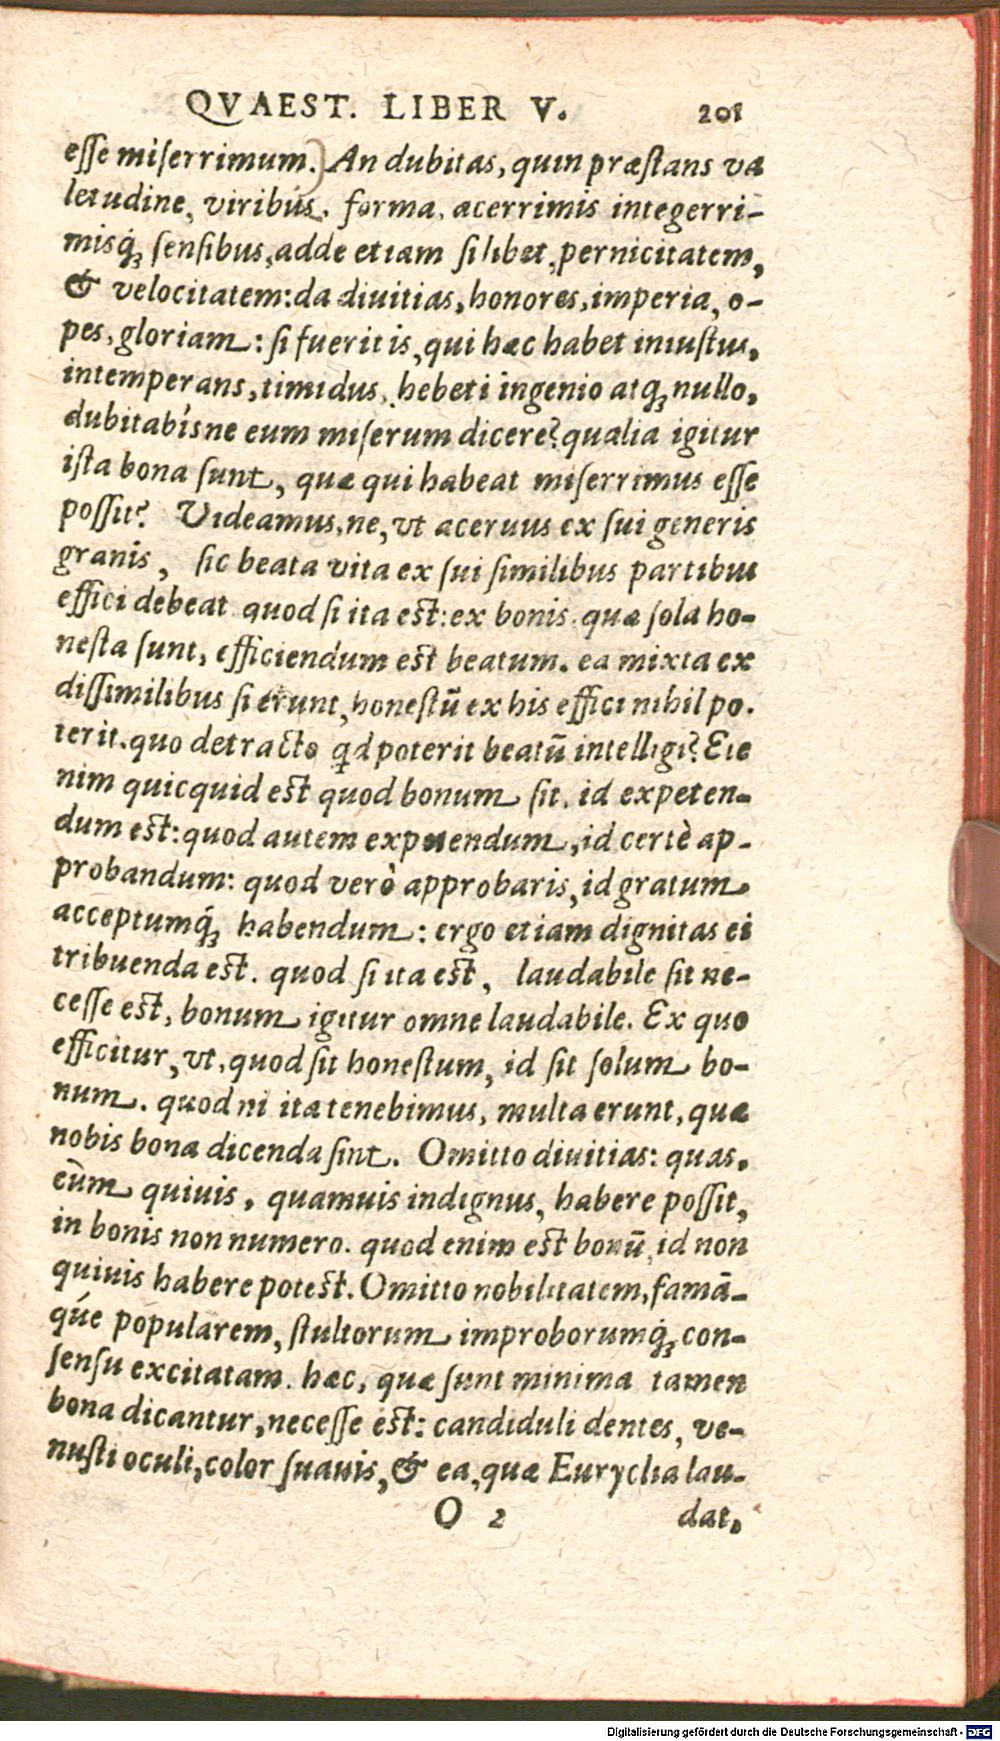 QVAEST. LIBER V. 201
esse miserrimum. An dubitas, quin præstans va
letudine, viribus, forma, acerrimis integerri-
misq́; sensibus, adde etiam si libet, pernicitatem,
& velocitatem: da diuitias, honores, imperia, o-
pes, gloriam: si fuerit is, qui hæc habet iniustus,
intemperans, timidus, hebeti ingenio atq; nullo,
dubitabísne eum miserum dicere? qualia igitur
ista bona sunt, quæ qui habeat miserrimus esse
possit? Videamus, ne, vt aceruus ex sui generis
granis, sic beata vita ex sui similibus partibus
effici debeat. quod si ita est: ex bonis. quæ sola ho-
nesta sunt, efficiendum est beatum. ea mixta ex
dissimilibus si erunt, honestū ex his effici nihil po.
terit. quo detracto qd poterit beatū intelligi? Ete
nim quicquid est quod bonum sit. id expeten-
dum est: quod autem expetendum, id certè ap-
probandum: quod verò approbaris, id gratum
acceptumq́; habendum: ergo etiam dignitas ei
tribuenda est. quod si ita est, laudabile sit ne-
cesse est, bonum igitur omne laudabile. Ex quo
efficitur, vt, quod sit honestum, id sit solum bo-
num. quod ni ita tenebimus, multa erunt, quæ
nobis bona dicenda sint. Omitto diuitias: quas,
cùm quiuis, quamuis indignus, habere possit,
in bonis non numero. quod enim est bonū, id non
quiuis habere potest. Omitto nobilitatem, famā-
qúe popularem, stultorum improborumq́; con-
sensu excitatam. hæc, quæ sunt minima tamen
bona dicantur, necesse est: candiduli dentes, ve-
nusti oculi, color suauis, & ea, quæ Euryclia lau-
O 2 dat,
Digitalisierung gefördert durch die Deutsche Forschungsgemeinschaft - DFG